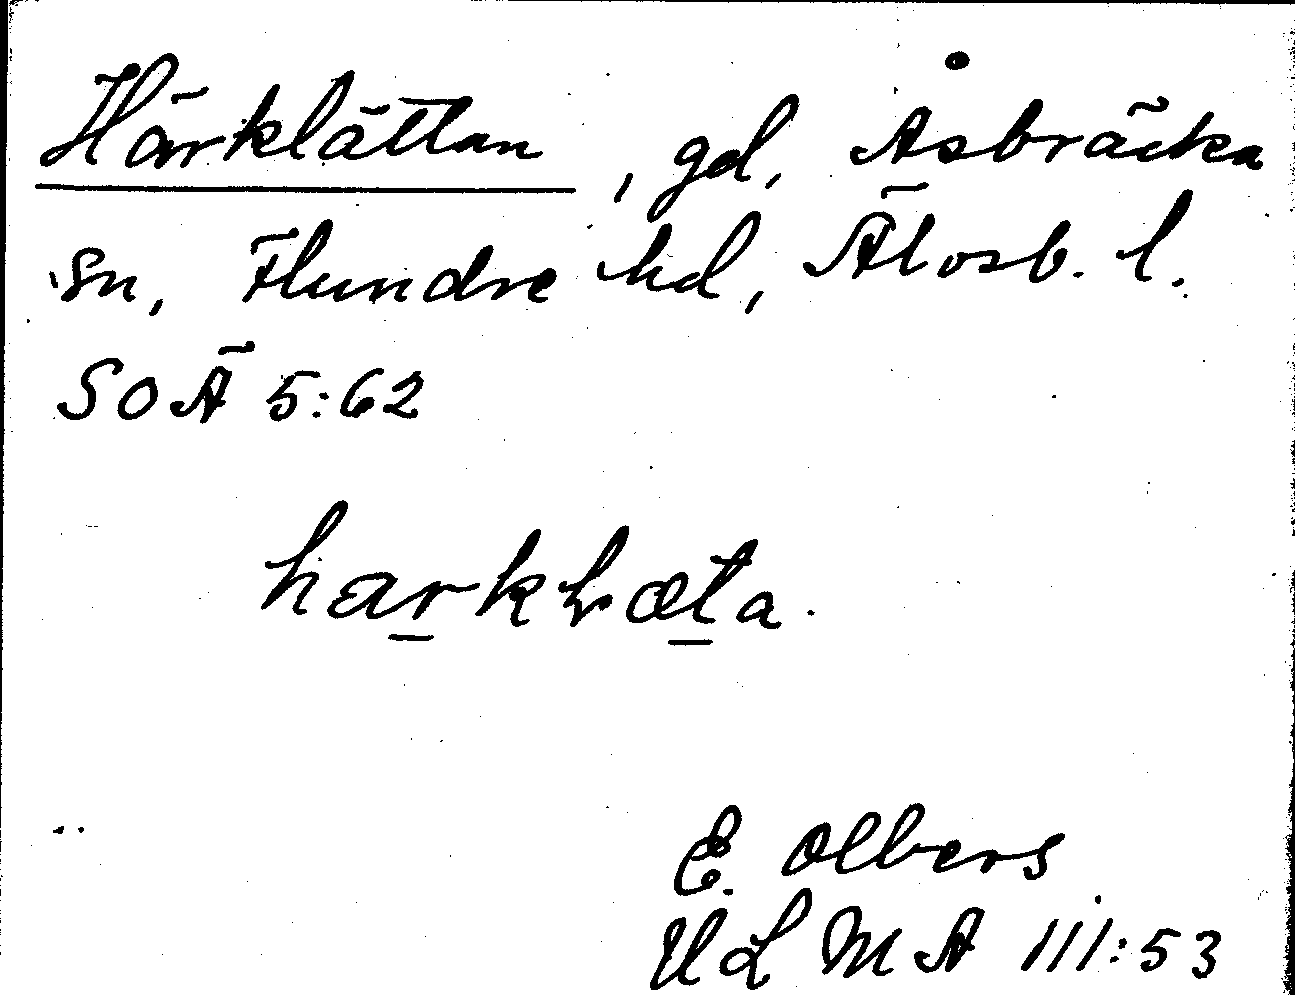 Härklättan, gd, Åsbräcka
sn, Flundre hd, Älvsb. l.
SOÄ 5:62
harklæta.
E. Olbers
ULMA III:53